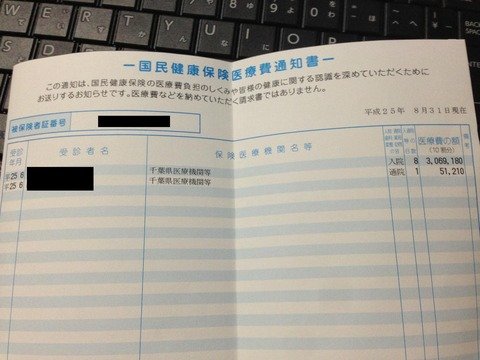 ー国民健康保険医療費通知書ー
この通知は、国民健康保険の医療費負担のしくみや皆様の健康に関する認識を深めていただくために
お送りするお知らせです。医療費などを納めていただく請求書ではありません。
平成25年 8月31日現在
被保険者証番号
受診年月 受診者名 保険医療機関名等 日数 医療費の額(10割分) 備考
年25 6 千葉県医療機関等 入院 8 3,069,180
年25 6 千葉県医療機関等 通院 1 51,210